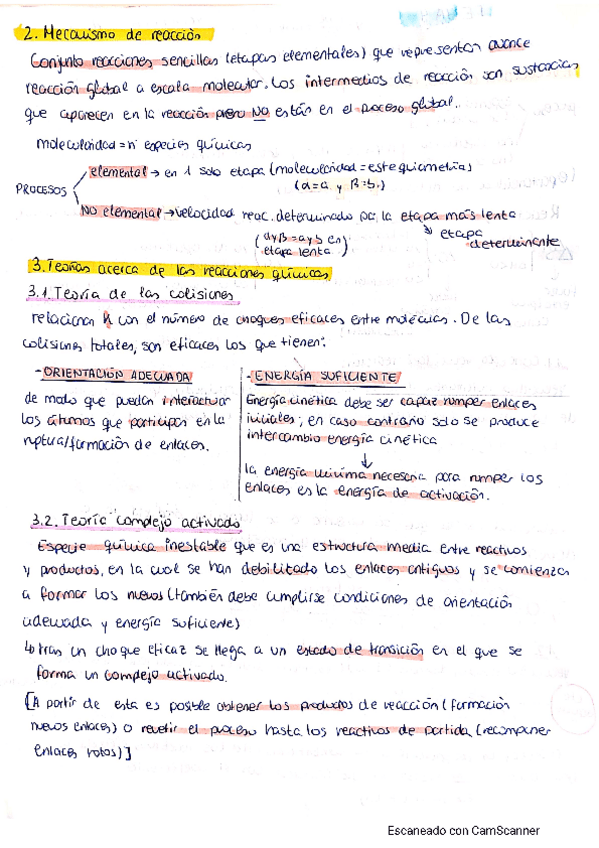 2. Mecanismo de reacción
Conjunto reacciones sencillas (etapas elementales) que representan avance
reacción global a escala molecular. Los intermedios de reacción son sustancias
que aparecen en la reacción pero NO están en el proceso global.
molecularidad = nº especies químicas
PROCESOS
elemental → en 1 sola etapa (molecularidad = estequiometría)
(α=a y β=b.)
NO elemental → velocidad reac. determinado por la etapa más lenta
(αyβ = ayb en
etapa lenta)
↳ etapa
determinante
3. Teorías acerca de las reacciones químicas
3.1. Teoría de las colisiones
relacionan k con el número de choques eficaces entre moléculas. De las
colisiones totales, son eficaces los que tienen:
- ORIENTACIÓN ADECUADA
de modo que puedan interactuar
los átomos que participan en la
ruptura/formación de enlaces.
- ENERGÍA SUFICIENTE
Energía cinética debe ser capaz romper enlaces
iniciales; en caso contrario solo se produce
intercambio energía cinética
↓
la energía mínima necesaria para romper los
enlaces es la energía de activación.
3.2. Teoría complejo activado
Especie química inestable que es una estructura media entre reactivos
y productos, en la cual se han debilitado los enlaces antiguos y se comienza
a formar los nuevos (también debe cumplirse condiciones de orientación
adecuada y energía suficiente)
↳ tras un choque eficaz se llega a un estado de transición en el que se
forma un complejo activado.
[A partir de esta es posible obtener los productos de reacción (formación
nuevos enlaces) o revertir el proceso hasta los reactivos de partida (recomponer
enlaces rotos)]
Escaneado con CamScanner